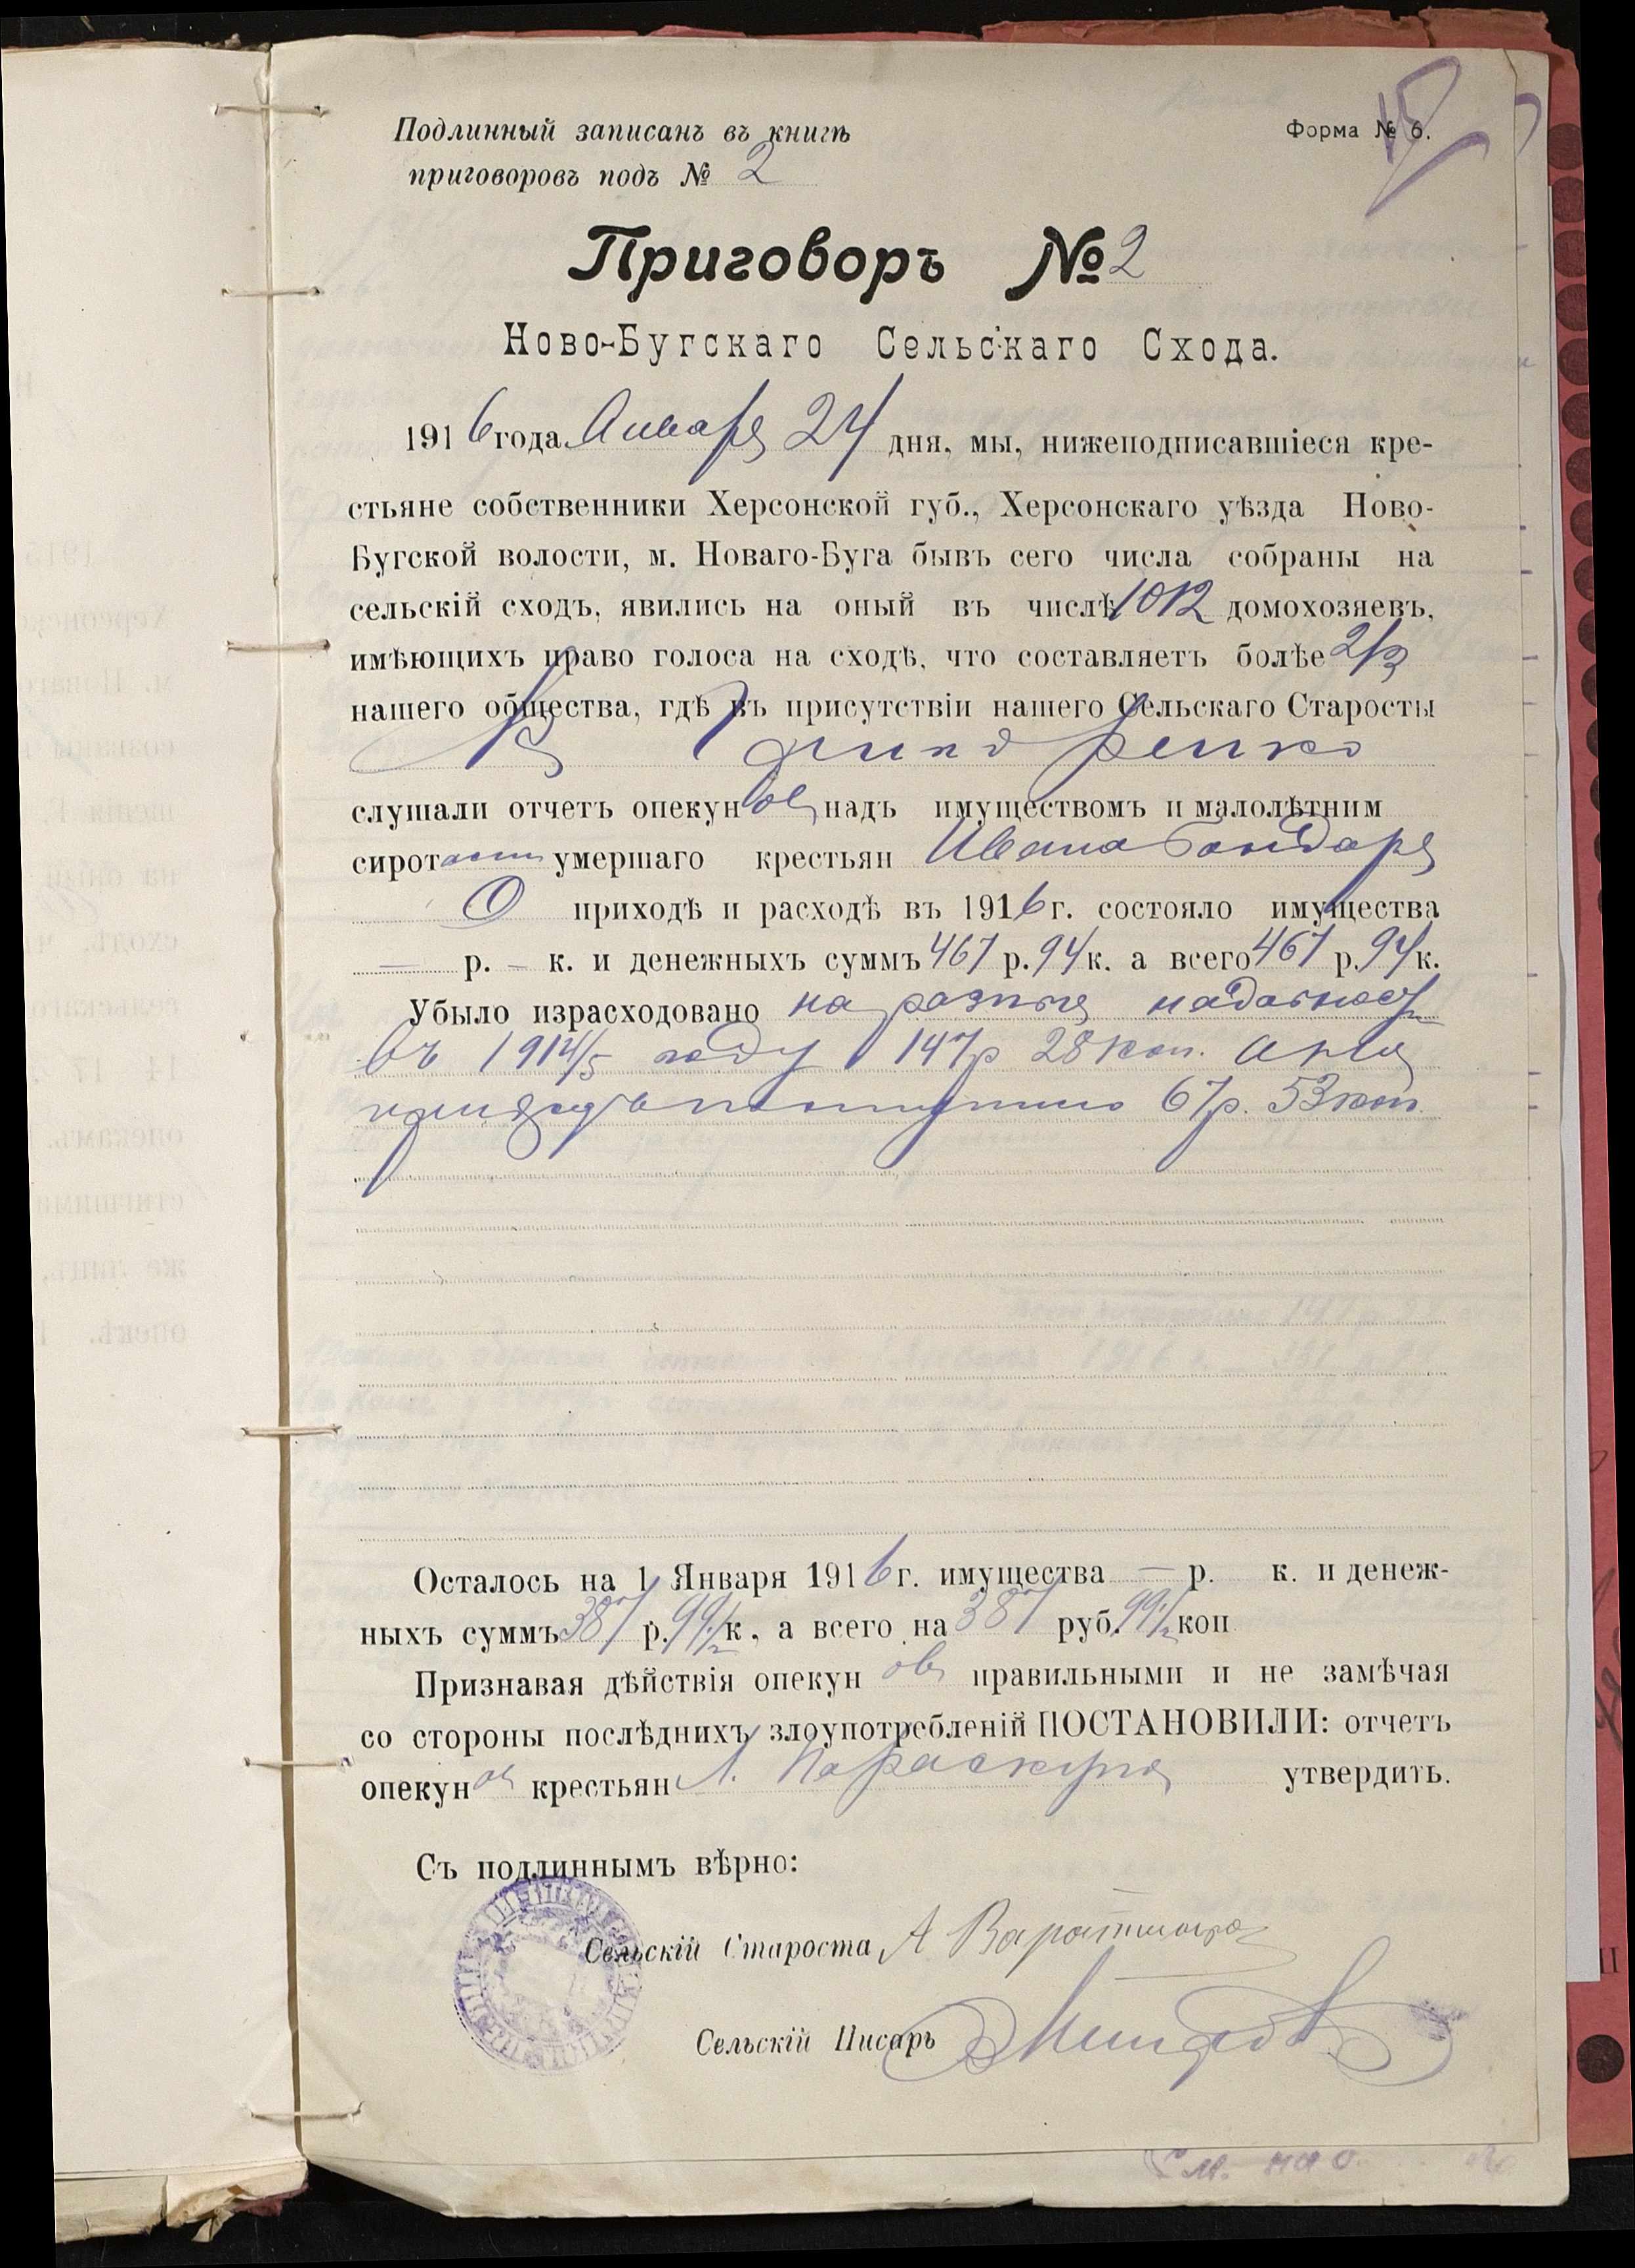 Подлинный записанъ въ книгѣ
Форма № 6.
приговоровъ подъ № 2
Приговоръ № 2
Ново-Бугскаго Сельскаго Схода.
1916 года Января 24 дня, мы, нижеподписавшіеся кре-
стьяне собственники Херсонской губ., Херсонскаго уѣзда Ново-
Бугской волости, м. Новаго-Буга бывъ сего числа собраны на
сельскій сходъ, явились на оный въ числѣ 1012 домохозяевъ,
имѣющихъ право голоса на сходѣ, что составляетъ болѣе 2/3
нашего общества, гдѣ въ присутствіи нашего Сельскаго Старосты
слушали отчетъ опекуновъ надъ имуществомъ и малолѣтним
сиротами умершаго крестьян Ивана Бондаря
О приходѣ и расходѣ въ 1916 г. состояло имущества
— р. — к. и денежныхъ суммъ 467 р. 94 к. а всего 467 р. 94 к.
Убыло израсходовано на разныя надобност
въ 1914/5 году 147 р 28 коп. а на
приходъ поступило 67 р. 53 коп.
Осталось на 1 Января 1916 г. имущества — р. к. и денеж-
ныхъ суммъ 387 р. 99 1/2 к, а всего на 387 руб. 99 1/2 коп
Признавая дѣйствія опекун овъ правильными и не замѣчая
со стороны послѣднихъ злоупотребленій ПОСТАНОВИЛИ: отчетъ
опекун овъ крестьян Л. Параскуна утвердить.
Съ подлиннымъ вѣрно:
Сельскій Староста А
Сельскій Писарь